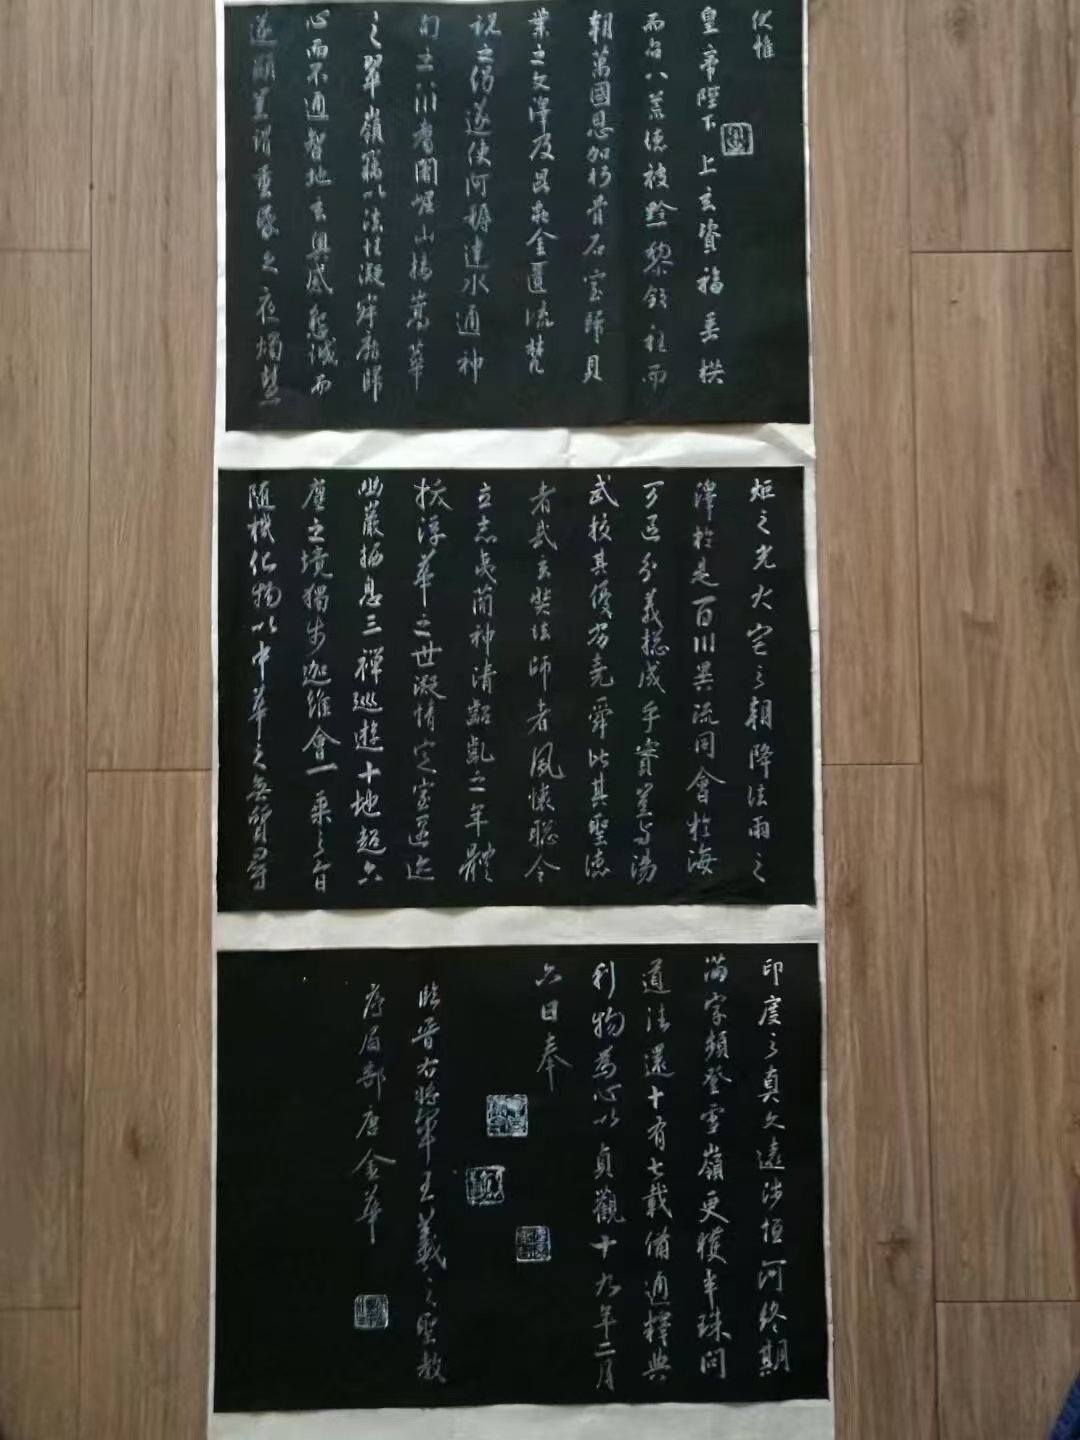 伏惟
皇帝陛下上玄資福垂拱
而治八荒德被黔黎斂衽而
朝萬國恩加朽骨石室歸貝
葉之文澤及昆蟲金匱流梵
說之偈遂使阿耨達水通神
甸之八川耆闍崛山接嵩華
之翠嶺竊以法性凝寂靡歸
心而不通智地玄奧感懇誠而
遂顯豈謂重昏之夜燭慧
炬之光火宅之朝降法雨之
澤於是百川異流同會於海
万區分義揔成乎實豈与湯
武校其優劣堯舜比其聖德
者哉玄奘法師者夙懷聰令
立志夷簡神清齠齔之年體
拔浮華之世凝情定室匿迹
幽巖栖息三禪巡遊十地超六
塵之境獨步迦維會一乘之旨
隨機化物以中華之無質尋
印度之真文遠涉恒河終期
滿字頻登雪嶺更獲半珠問
道法還十有七載備通釋典
利物爲心以貞觀十九年二月
六日奉
臨晉右將軍王羲之聖教
序眉郡唐金華